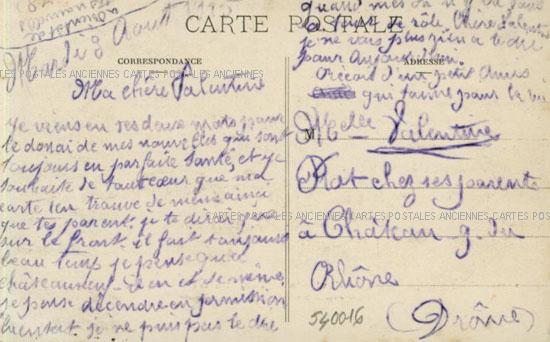 Mardi 8 Août
CARTE POSTALE
CORRESPONDANCE
ADRESSE
CARTES POSTALES ANCIENNES CARTES POSTALES ANCIENNES CARTES POSTALES ANCIENNES
Ma chère Valentine
Je viens en ses deux mots pour
te donai de mes nouvelles qui sont
toujours en parfaite santé, et je
souhaite de tout cœur que ma
carte ten trouve de meme ainsi
que tes parent. je te dirai que
sur le front il fait toujours
beau temp je pense qua
châteauneuf
je pense décendre en permission
bientôt. je ne puis pas te dire
quand mes
de rôle Chère Valentine
je ne vois plus rien a te dire
pour Aujourd'hui.
Recoit d'un petit Amis
qui
pour la vie
Melle Valentine
M
Rat chez ses parents
CARTES POSTALES ANCIENNES CARTES POSTALES ANCIENNES CARTES POSTALES
à Château-g. du
Rhône
(Drôme)
540016